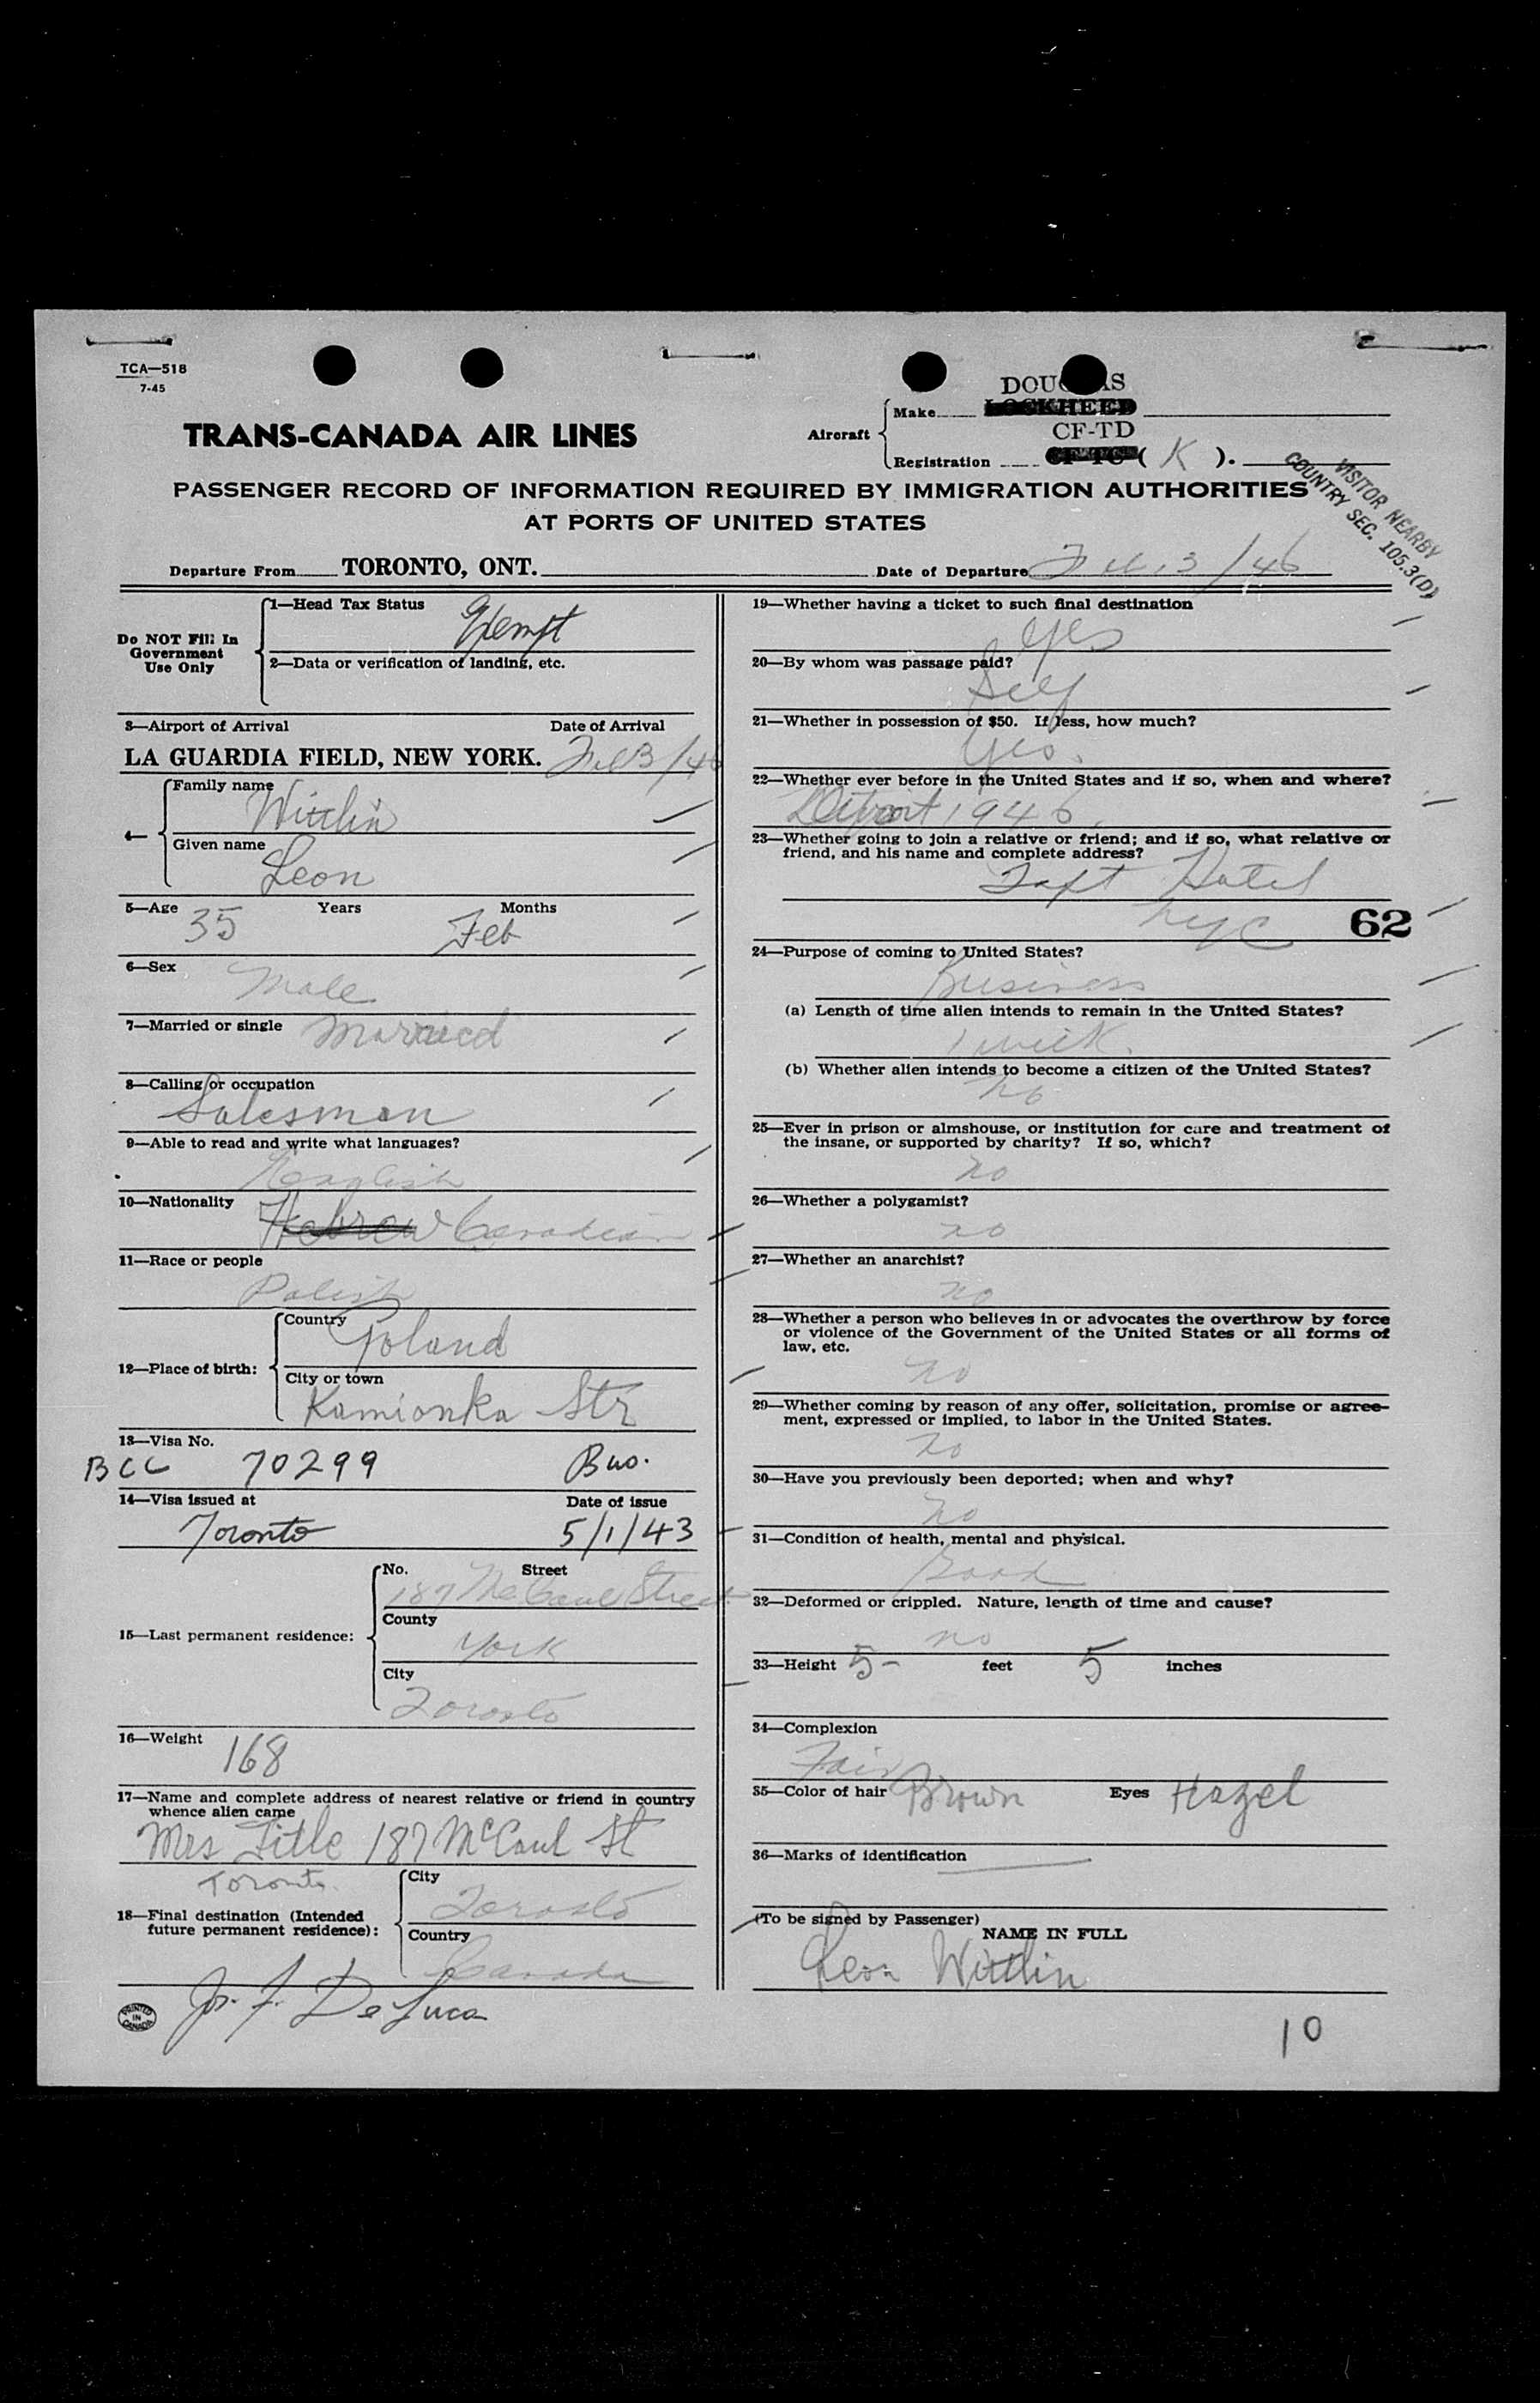 TCA—518
7-45
TRANS-CANADA AIR LINES
Aircraft
Make DOUGLAS
LOCKHEED
CF-TD
Registration CF-TC ( K ).
VISITOR NEARBY
COUNTRY SEC. 105.3(D)
PASSENGER RECORD OF INFORMATION REQUIRED BY IMMIGRATION AUTHORITIES
AT PORTS OF UNITED STATES
Departure From TORONTO, ONT. Date of Departure Feb. 3/46
Do NOT Fill In
Government
Use Only
1—Head Tax Status Exempt
2—Data or verification of landing, etc.
3—Airport of Arrival Date of Arrival
LA GUARDIA FIELD, NEW YORK. Feb 3/46
4—
Family name
Wittlin
Given name
Leon
5—Age 35 Years Months Feb
6—Sex Male
7—Married or single Married
8—Calling or occupation
Salesman
9—Able to read and write what languages?
English
10—Nationality Hebrew Canadian
11—Race or people
Polish
12—Place of birth:
Country
Poland
City or town
Kamionka Str
13—Visa No.
BCC 70299 Bus.
14—Visa issued at Date of issue
Toronto 5/1/43
15—Last permanent residence:
No. Street
187 McCaul Street
County
York
City
Toronto
16—Weight 168
17—Name and complete address of nearest relative or friend in country
whence alien came
Mrs Title 187 McCaul St
Toronto.
18—Final destination (Intended
future permanent residence):
City
Toronto
Country
Canada
PRINTED
IN
CANADA
Jos. F. DeLuca
19—Whether having a ticket to such final destination
Yes
20—By whom was passage paid?
Self
21—Whether in possession of $50. If less, how much?
Yes.
22—Whether ever before in the United States and if so, when and where?
Detroit 1946.
23—Whether going to join a relative or friend; and if so, what relative or
friend, and his name and complete address?
Taft Hotel
NYC 62
24—Purpose of coming to United States?
Business
(a) Length of time alien intends to remain in the United States?
1 week.
(b) Whether alien intends to become a citizen of the United States?
no
25—Ever in prison or almshouse, or institution for care and treatment of
the insane, or supported by charity? If so, which?
no
26—Whether a polygamist?
no
27—Whether an anarchist?
no
28—Whether a person who believes in or advocates the overthrow by force
or violence of the Government of the United States or all forms of
law, etc.
no
29—Whether coming by reason of any offer, solicitation, promise or agree-
ment, expressed or implied, to labor in the United States.
no
30—Have you previously been deported; when and why?
no
31—Condition of health, mental and physical.
Good
32—Deformed or crippled. Nature, length of time and cause?
no
33—Height 5- feet 5 inches
34—Complexion
Fair
35—Color of hair Brown Eyes Hazel
36—Marks of identification
(To be signed by Passenger)
NAME IN FULL
Leon Wittlin
10